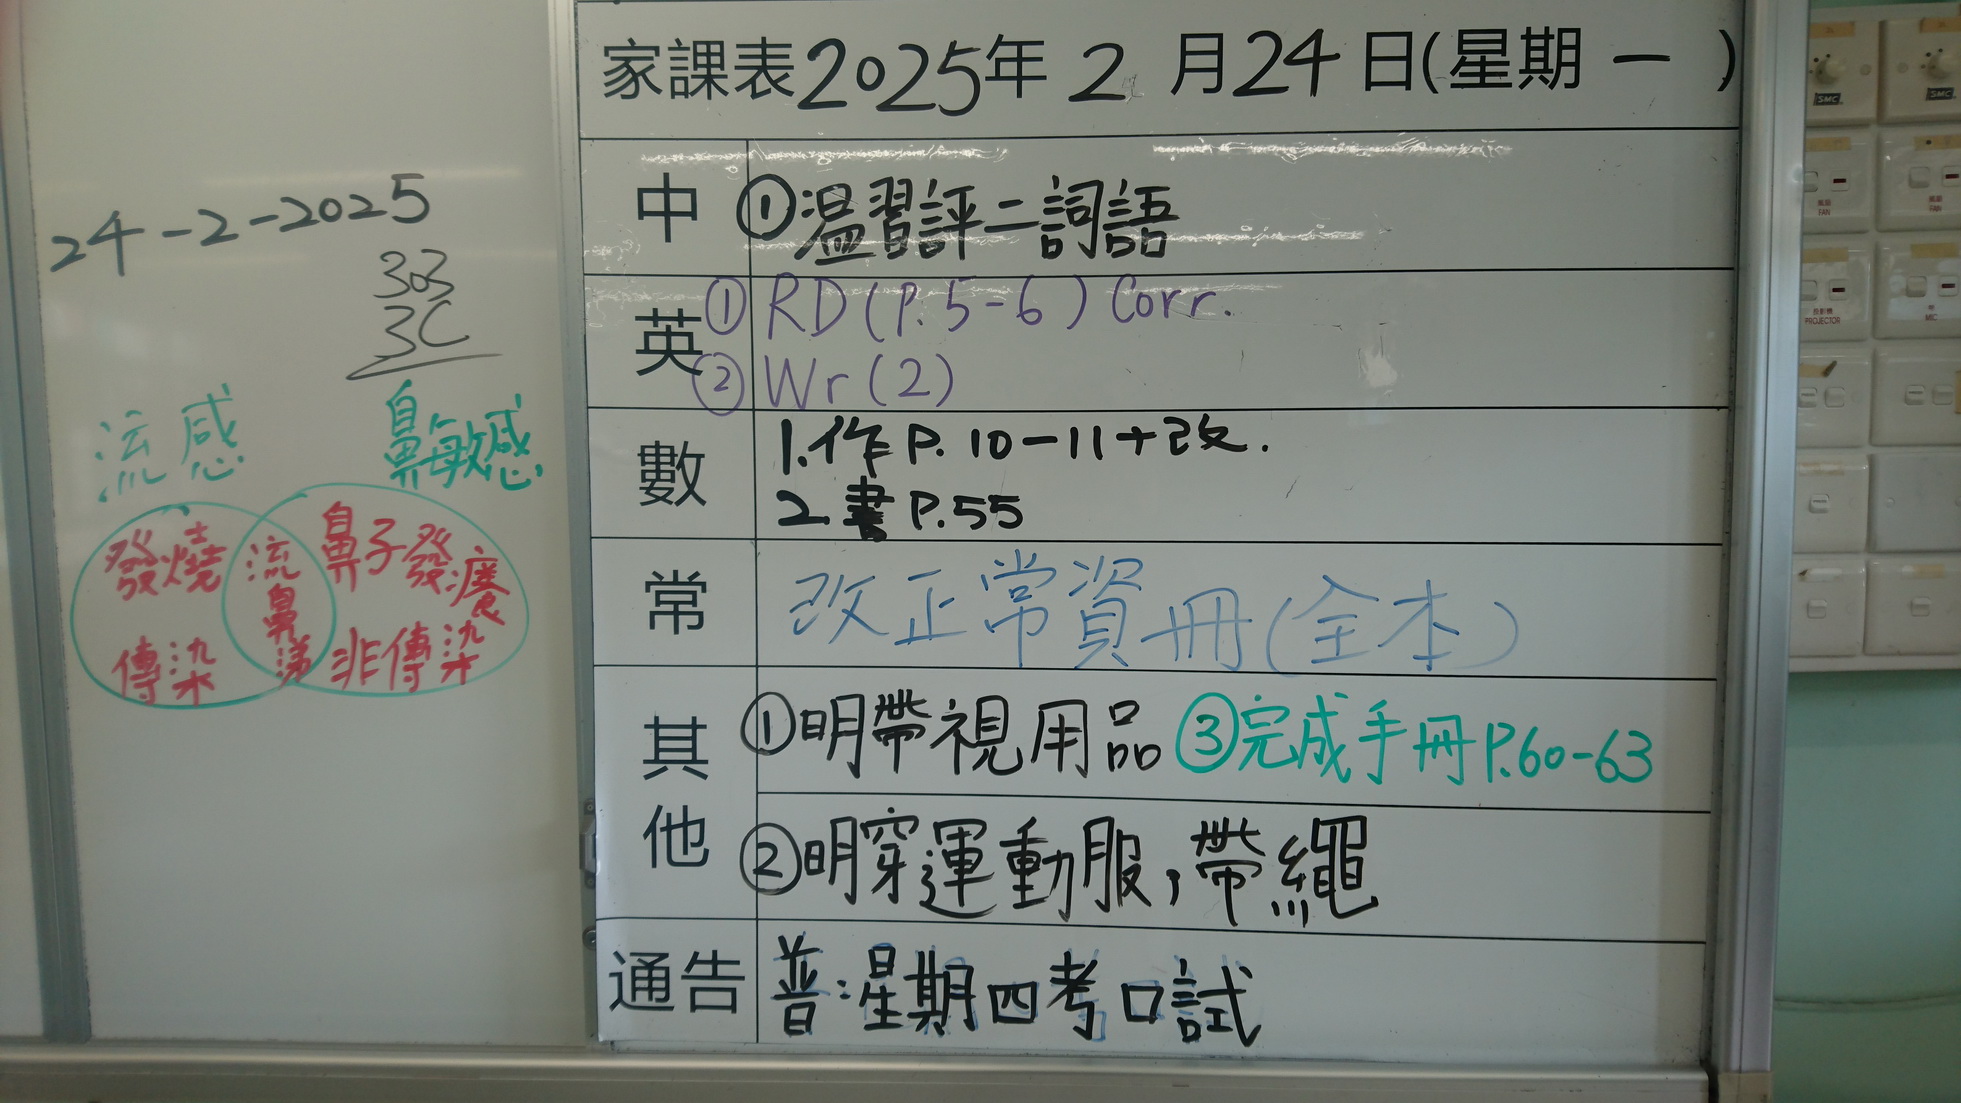 24-2-2025
303
3C
流感
鼻敏感
發燒
傳染
流鼻涕
鼻子發癢
非傳染
家課表2025年 2 月24日(星期 一 )
中 ①温習評二詞語
英 ① RD(P.5-6) Corr.
② Wr(2)
數 1.作P.10-11+改.
2.書P.55
常 改正常資冊(全本)
其他 ①明帶視用品 ③完成手冊P.60-63
②明穿運動服,帶繩
通告 普:星期四考口試
SMC
SMC
風扇
FAN
風扇
FAN
投影機
PROJECTOR
MIC